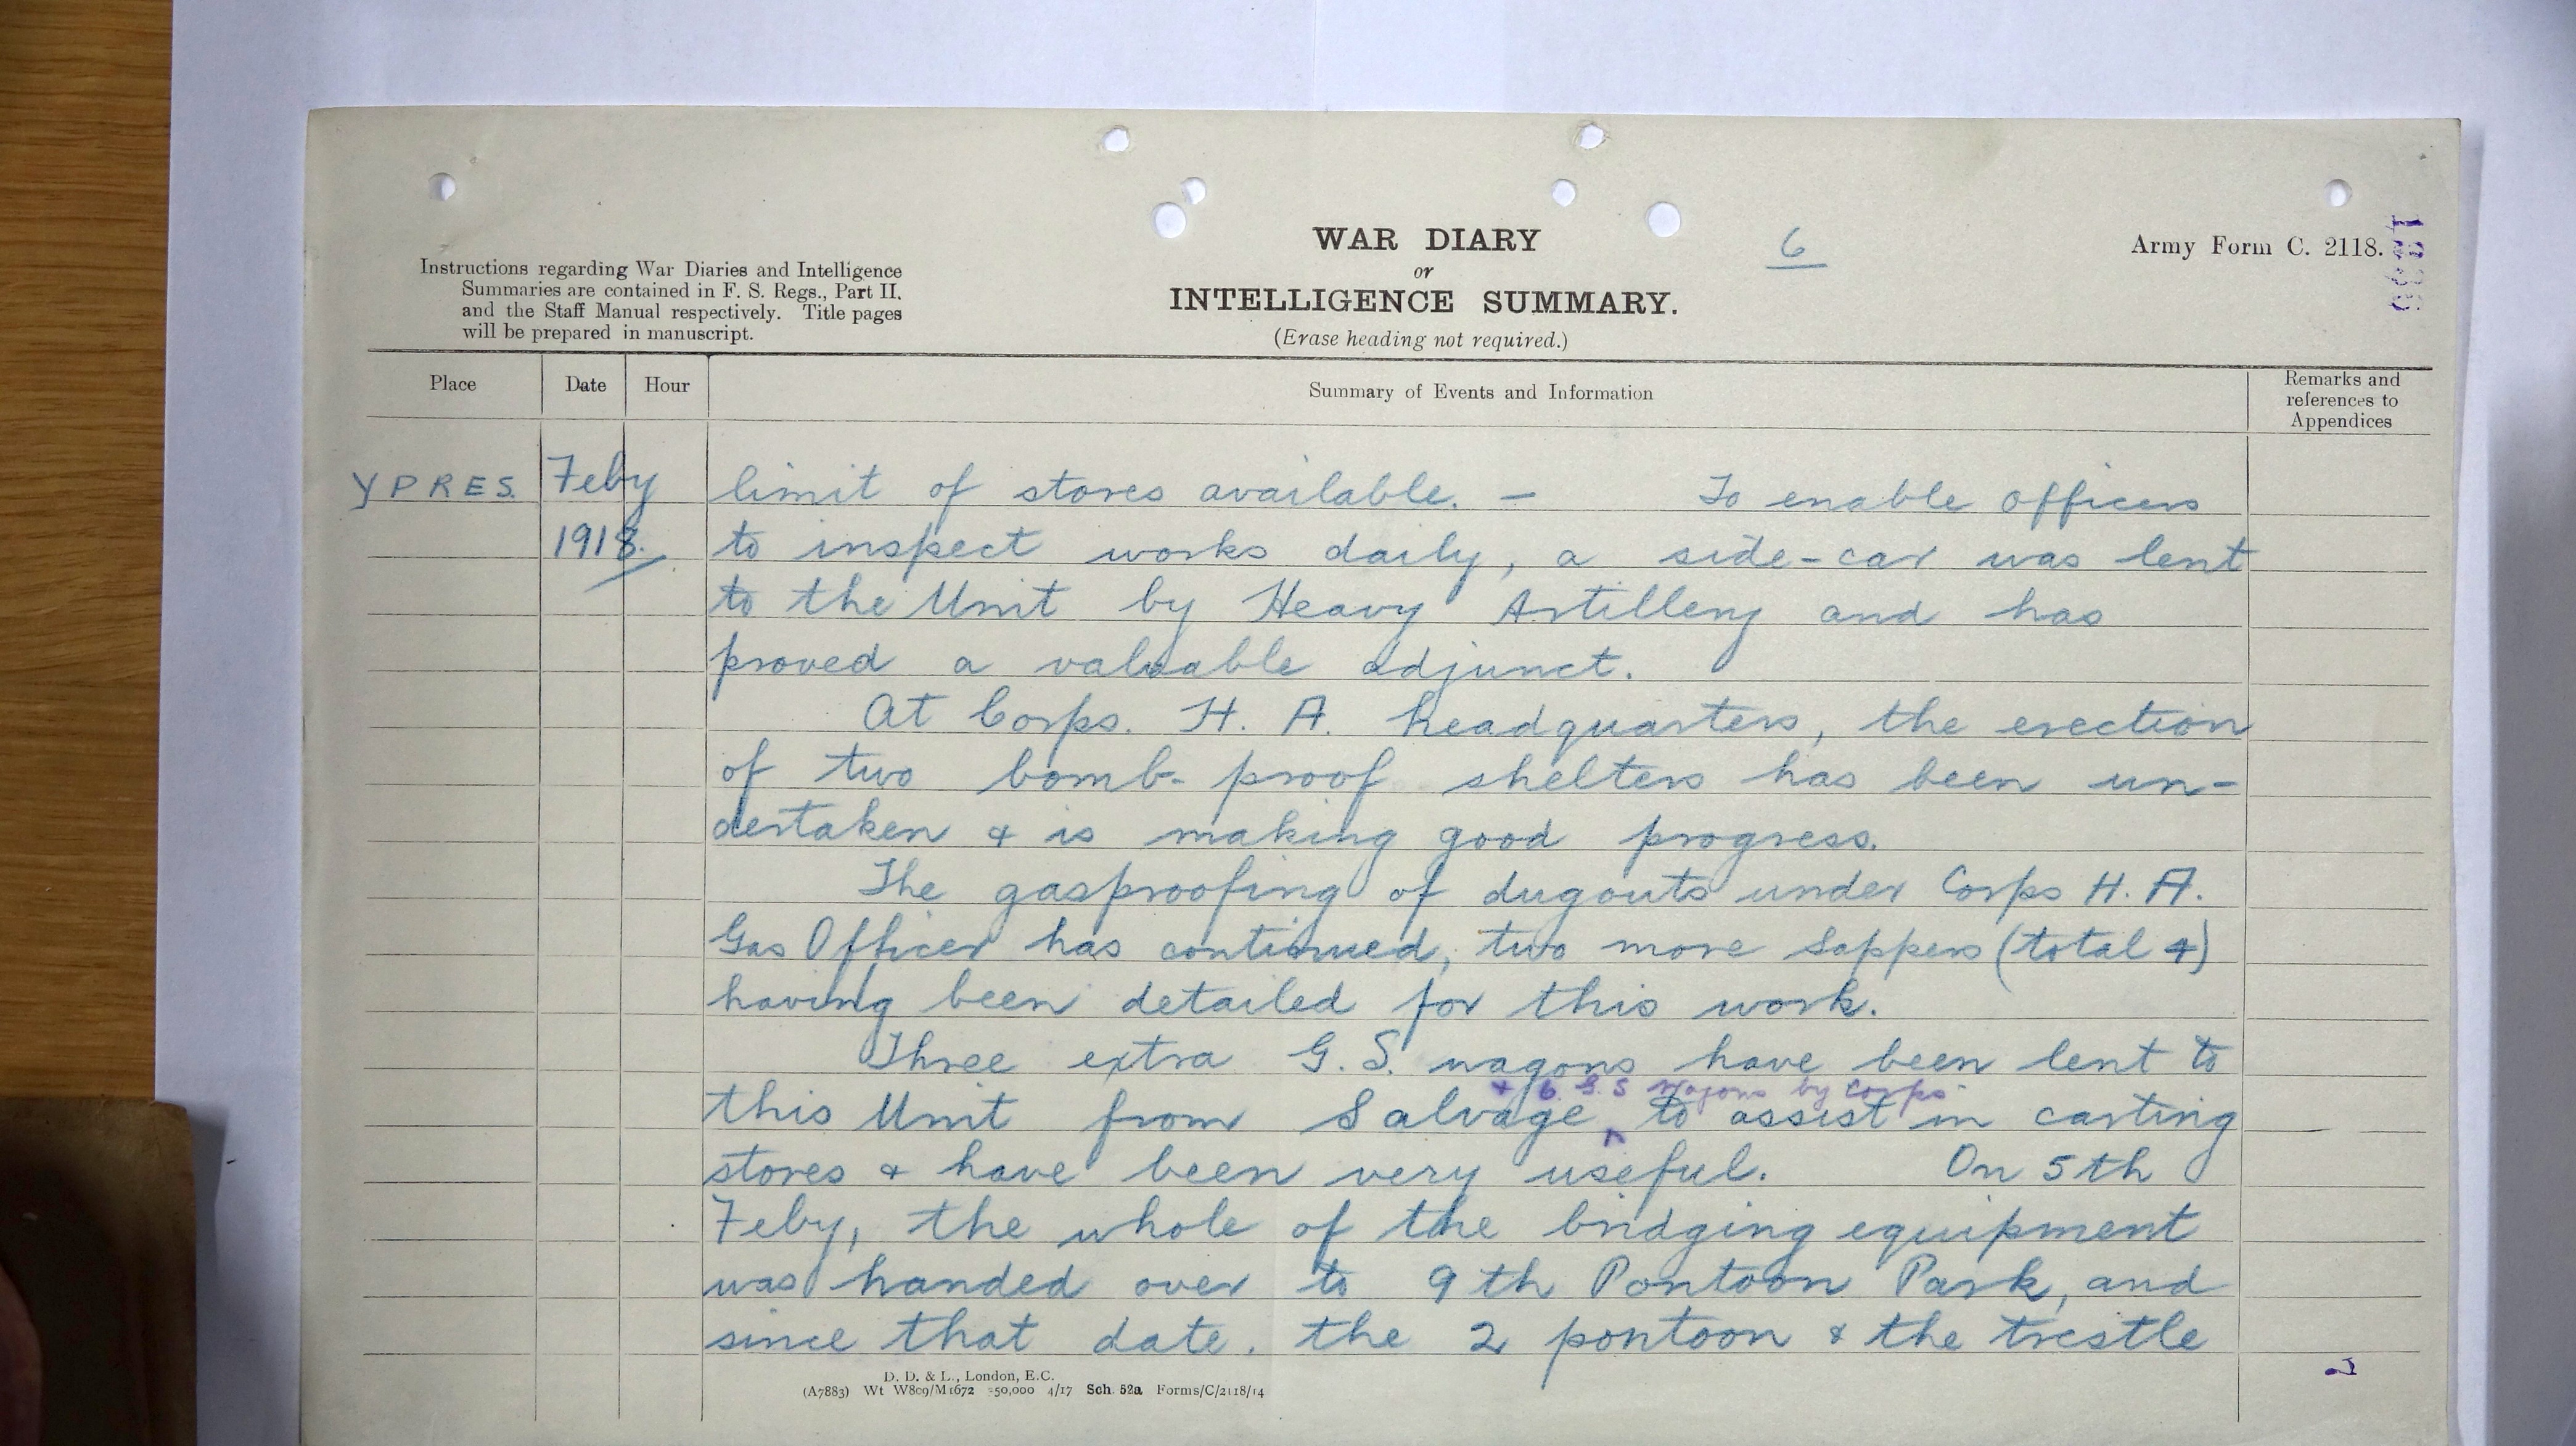 WAR DIARY
or
INTELLIGENCE SUMMARY.
(Erase heading not required.)
6
Army Form C. 2118.
Instructions regarding War Diaries and Intelligence
Summaries are contained in F. S. Regs., Part II.
and the Staff Manual respectively. Title pages
will be prepared in manuscript.
Place
Date
Hour
Summary of Events and Information
Remarks and
references to
Appendices
YPRES.
Feby
1918.
limit of stores available. — To enable officers
to inspect works daily, a side-car was lent
to the Unit by Heavy Artillery and has
proved a valuable adjunct.
At Corps. H. A. headquarters, the erection
of two bomb-proof shelters has been un-
dertaken & is making good progress.
The gasproofing of dugouts under Corps H. A.
Gas Officer has continued, two more Sappers (total 4)
having been detailed for this work.
Three extra G. S. wagons have been lent to
+ 6 G.S wagons by Corps
this Unit from Salvage, to assist in carting
stores & have been very useful. On 5th
Feby, the whole of the bridging equipment
was handed over to 9th Pontoon Park, and
since that date. the 2 pontoon & the trestle
D. D. & L., London, E.C.
(A7883) Wt W8c9/M1672 350,000 4/17 Sch. 52a Forms/C/2118/14